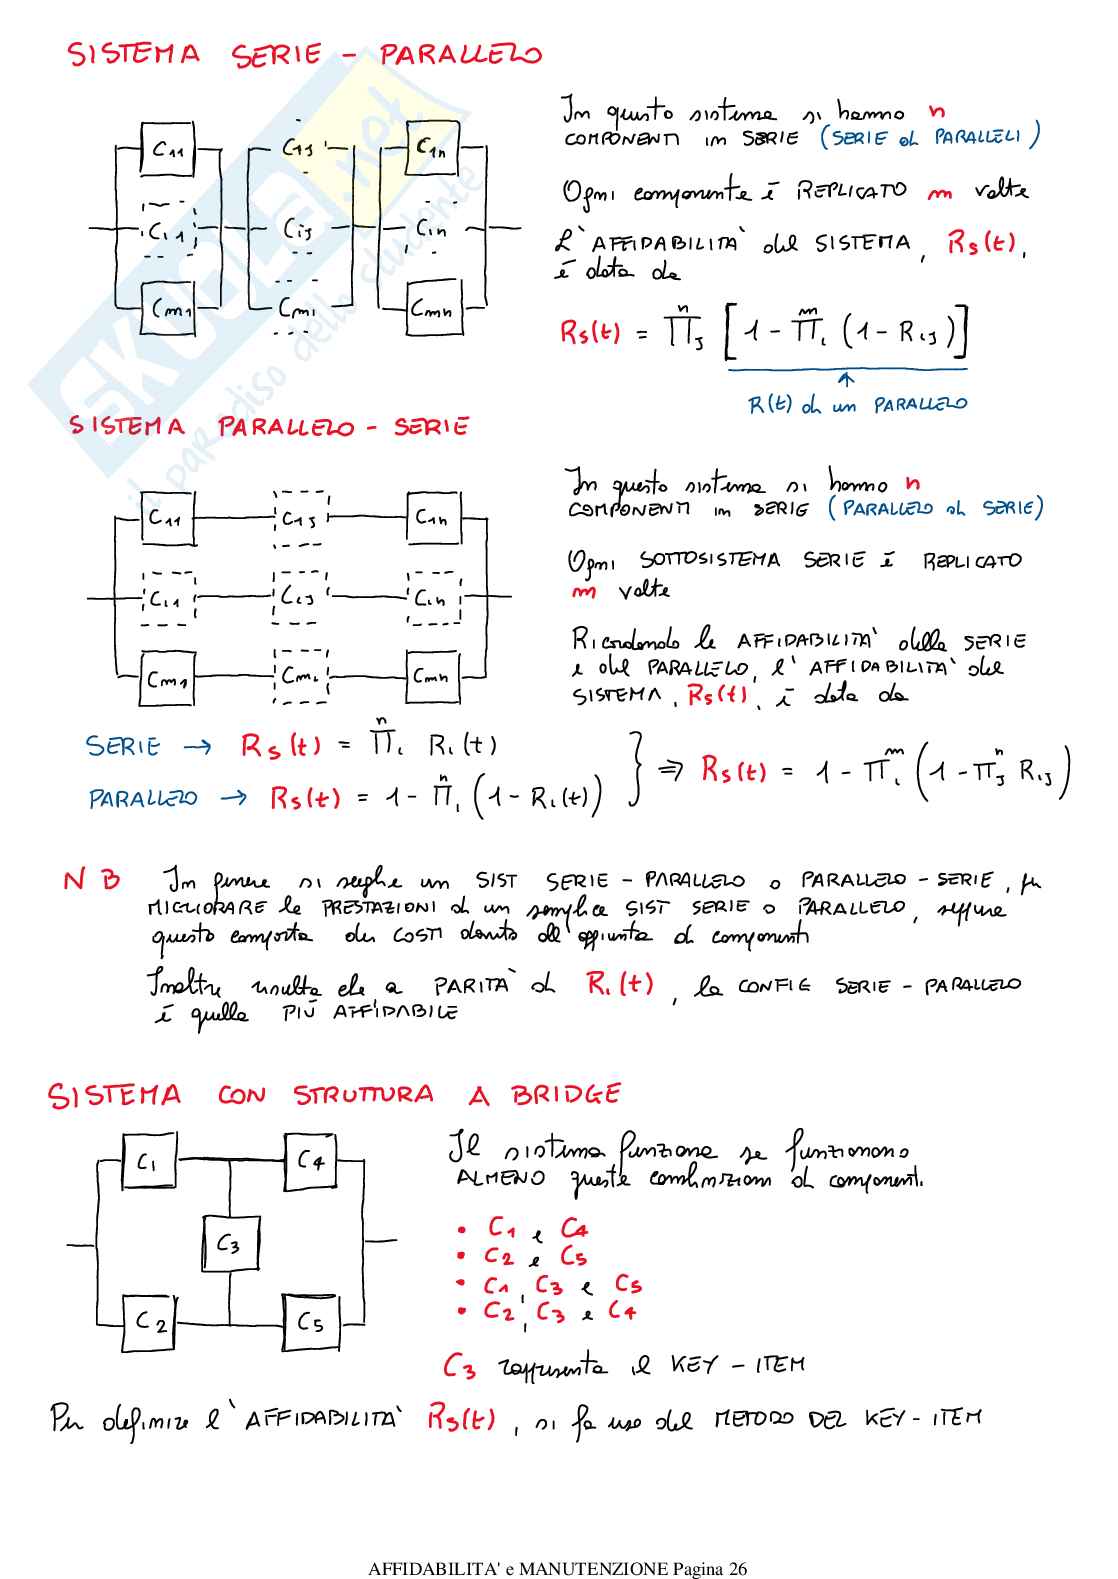 SISTEMA SERIE - PARALLELO
In questo sistema si hanno n
COMPONENTI in SERIE (SERIE di PARALLELI)
C11 C1J C1n
Ogni componente è REPLICATO m volte
Ci1 CiJ Cin
L'AFFIDABILITÀ del SISTEMA, Rs(t),
è data da
Cm1 Cmi Cmn
Rs(t) = n∏J [1 - m∏i (1 - RiJ)]
R(t) di un PARALLELO
SKUOLA.net
il paradiso dello studente
SISTEMA PARALLELO - SERIE
In questo sistema si hanno n
COMPONENTI in SERIE (PARALLELO di SERIE)
C11 C1J C1n
Ogni SOTTOSISTEMA SERIE è REPLICATO
m volte
Ci1 CiJ Cin
Ricordando le AFFIDABILITÀ della SERIE
e del PARALLELO, l'AFFIDABILITÀ del
SISTEMA, Rs(t), è data da
Cm1 Cmi Cmn
SERIE → Rs(t) = n∏i Ri(t)
PARALLELO → Rs(t) = 1 - n∏i (1 - Ri(t)) } ⇒ Rs(t) = 1 - ∏m i (1 - ∏n J RiJ)
NB In genere si sceglie un SIST SERIE - PARALLELO o PARALLELO - SERIE, per
MIGLIORARE le PRESTAZIONI di un semplice SIST SERIE o PARALLELO, seppure
questo comporta dei COSTI dovuti all'aggiunta di componenti
Inoltre risulta che a PARITÀ di Ri(t), la CONFIG SERIE - PARALLELO
è quella PIÙ AFFIDABILE
SISTEMA CON STRUTTURA A BRIDGE
Il sistema funziona se funzionano
ALMENO queste combinazioni di componenti.
C1 C4
• C1 e C4
C3
• C2 e C5
• C1, C3 e C5
• C2, C3 e C4
C2 C5
C3 rappresenta il KEY - ITEM
Per definire l'AFFIDABILITÀ Rs(t), si fa uso del METODO DEL KEY - ITEM
AFFIDABILITA' e MANUTENZIONE Pagina 26